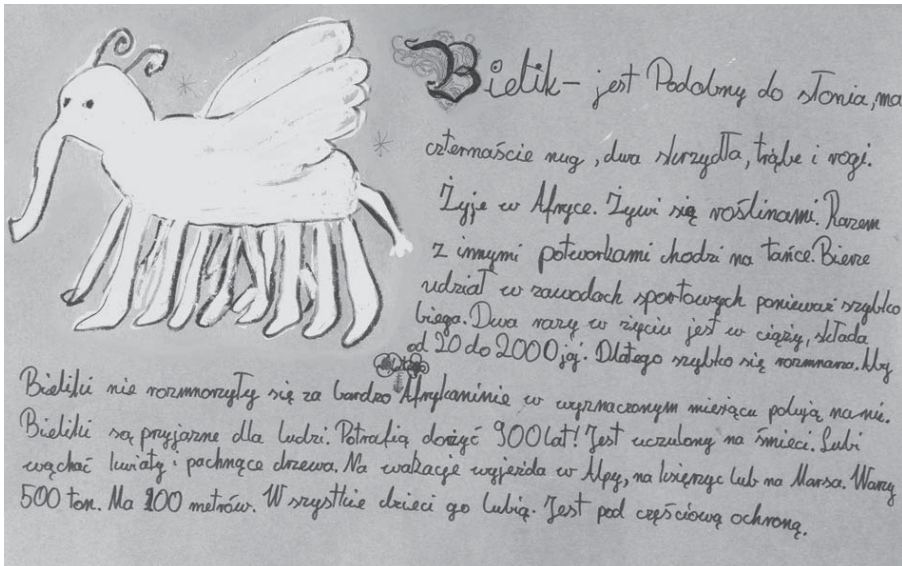 Bielik - jest Podobny do słonia, ma
czternaście nug, dwa skrzydła, trąbe i rogi.
Żyje w Afryce. Żywi się roślinami. Razem
z innymi potworkami chodzi na tańce. Bierze
udział w zawodach sportowych ponieważ szybko
biega. Dwa razy w życiu jest w ciąży, składa
od 20 do 2000 jaj. Dlatego szybko się rozmnarza. Aby
Bieliki nie rozmnorzyły się za bardzo Afrykaninie w wyznaczonym miesiącu polują na nie.
Bieliki są przyjazne dla ludzi. Potrafią dożyć 900 lat! Jest uczulony na śmieci. Lubi
wąchać kwiaty i pachnące drzewa. Na wakacje wyjeżda w Alpy, na księrzyc lub na Marsa. Warzy
500 ton. Ma 200 metrów. Wszystkie dzieci go lubią. Jest pod częściową ochroną.